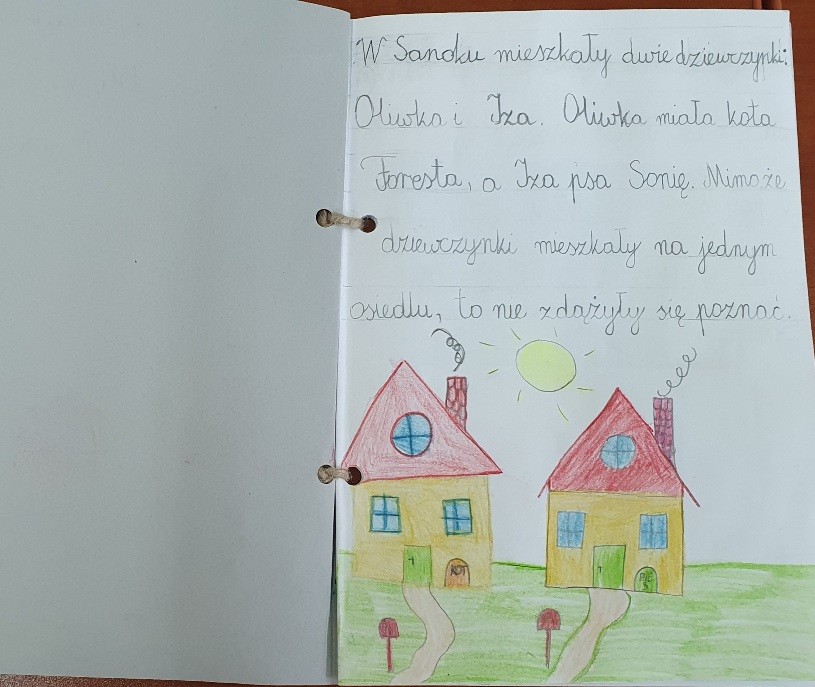 W Sanoku mieszkały dwie dziewczynki:
Oliwka i Iza. Oliwka miała kota
Foresta, a Iza psa Sonię. Mimo że
dziewczynki mieszkały na jednym
osiedlu, to nie zdążyły się poznać.
KOT
PIES